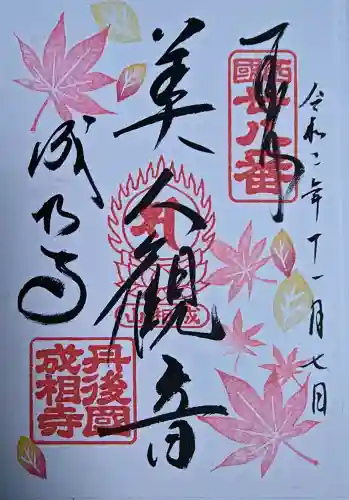 令和二年十一月七日
奉拝
西国廿八番
美人観音
成相山
成相寺
丹後國成相寺